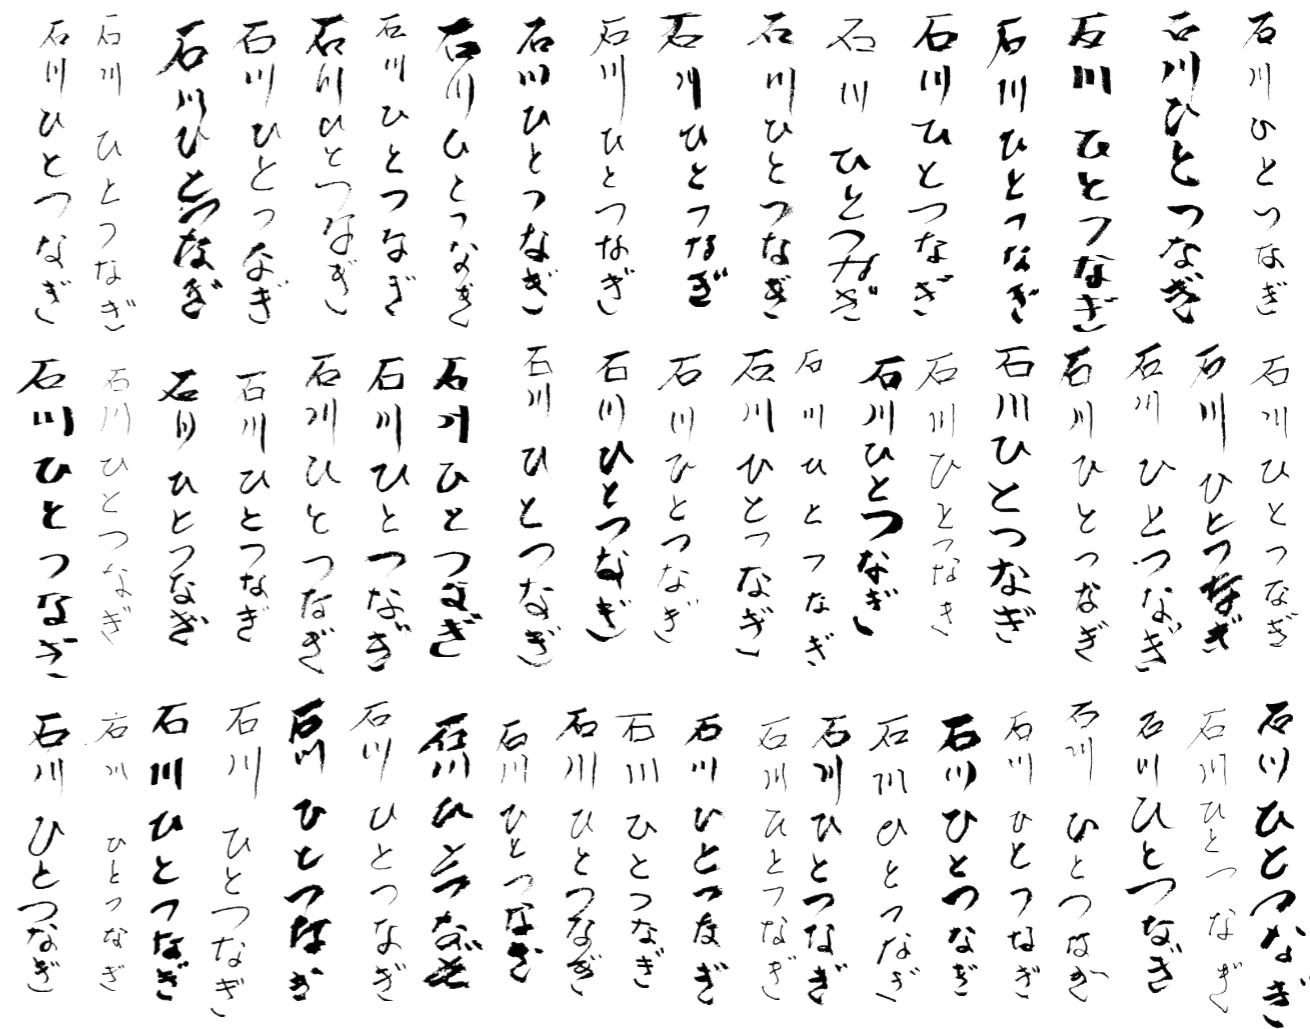 石川ひとつなぎ
石川ひとつなぎ
石川ひとつなぎ
石川ひとつなぎ
石川ひとつなぎ
石川ひとつなぎ
石川ひとつなぎ
石川ひとつなぎ
石川ひとつなぎ
石川ひとつなぎ
石川ひとつなぎ
石川ひとつなぎ
石川ひとつなぎ
石川ひとつなぎ
石川ひとつなぎ
石川ひとつなぎ
石川ひとつなぎ
石川ひとつなぎ
石川ひとつなぎ
石川ひとつなぎ
石川ひとつなぎ
石川ひとつなぎ
石川ひとつなぎ
石川ひとつなぎ
石川ひとつなぎ
石川ひとつなぎ
石川ひとつなぎ
石川ひとつなぎ
石川ひとつなぎ
石川ひとつなぎ
石川ひとつなぎ
石川ひとつなぎ
石川ひとつなぎ
石川ひとつなぎ
石川ひとつなぎ
石川ひとつなぎ
石川ひとつなぎ
石川ひとつなぎ
石川ひとつなぎ
石川ひとつなぎ
石川ひとつなぎ
石川ひとつなぎ
石川ひとつなぎ
石川ひとつなぎ
石川ひとつなぎ
石川ひとつなぎ
石川ひとつなぎ
石川ひとつなぎ
石川ひとつなぎ
石川ひとつなぎ
石川ひとつなぎ
石川ひとつなぎ
石川ひとつなぎ
石川ひとつなぎ
石川ひとつなぎ
石川ひとつなぎ